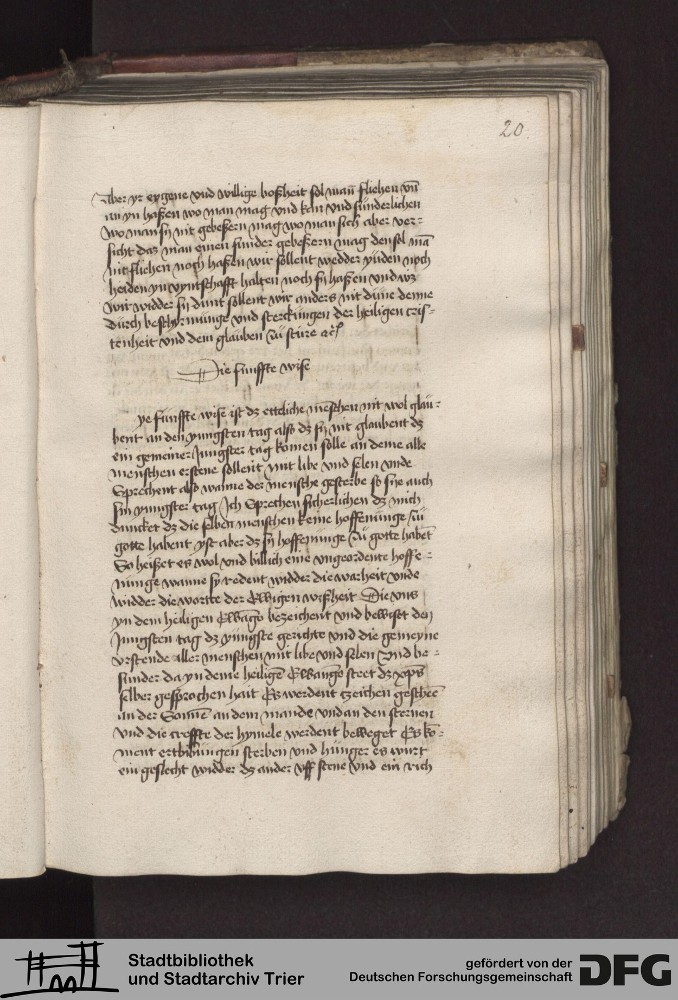 20
Aber yr eygene vnd willige boßheit sol man fliehen vn̄
an yn haßen wo man mag vnd kan vnd sunderlichen
wo man sÿ nit gebeßern mag wo man sich aber ver=
sicht daz man einen sunder gebeßern mag den sol mā
nit fliehen noch haßen wir sollent wedder yuden noch
heiden yn vyntschafft halten noch sÿ haßen vnd wz
wir widder sÿ dunt sollent wir anders nit dune denne
durch beschyrmunge vnd sterckungen der heiligen cris=
tenheit vnd dem glauben zu sture
Die funffte wise
ye funffte wise ist dz etteliche mēschen nit wol glau=
bent an den yungsten tag also dz sÿ nit glaubent dz
ein gemeiner Jungster tag komen solle an deme alle
menschen erstene sollent mit libe vnd selen vnde
Sprechent also wanne der mensche gesterbe so sye auch
sin yungster tag Jch Sprechen sicherlichen dz mich
duncket dz die selben menschen keine hoffenunge zu
gotte habent yst aber dz sÿ hoffenunge zu gotte habēt
So heißet es wol vnd billich eine vngeordente hoffe=
nunge wanne sy redent widder die warheit vnde
widder die wortte der Ewigen wißheit Die vns
yn dem heiligen Ewāgo bezeichent vnd bewiset den
Jungsten tag dz yungste gerichte vnd die gemeyne
vrstende aller menschen mit libe vnd selen Vnd be=
sunder da yn deme heiligē Ewāngo steet dz xp̄s
selber gesprochen hait Es werdent tzeichen gescheē
an der Sonnē an dem mande vnd an den sternen
Vnd die creffte der hymele werdent beweget Es ko=
ment ertbibungen sterben vnd hunger es wurt
ein geslecht widder dz ander vff stene Vnd ein rich
Stadtbibliothek
und Stadtarchiv Trier
gefördert von der
Deutschen Forschungsgemeinschaft
DFG